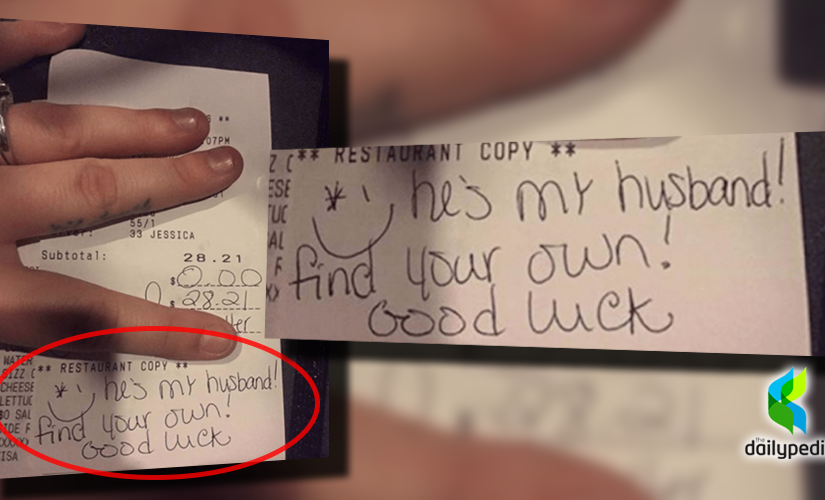 **
07PM
55/1
33 JESSICA
Subtotal: 28.21
$ 0.00
$ 28.21
WATER
** RESTAURANT COPY **
he's my husband!
find your own!
Good luck
CHEESE
LETTUC
VISA
** RESTAURANT COPY **
he's my husband!
find your own!
Good luck
the
dailypedi